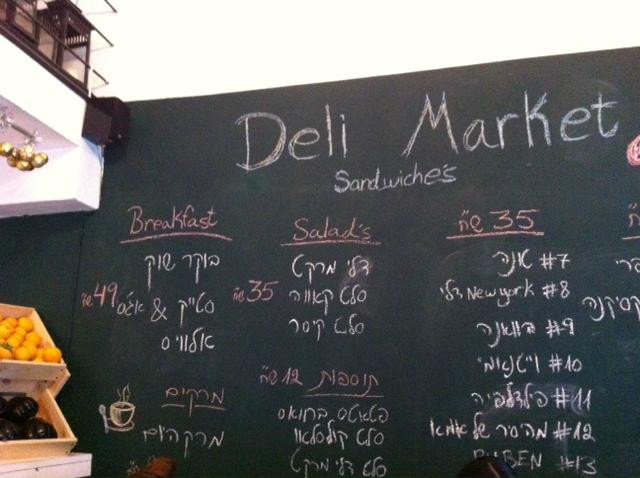 Deli Market
Sandwiche's
Breakfast
בוקר שוק
49 ש"ח
סטייק & אגס
אלוויס
מרקים
מרק היום
Salad's
דלי מרקט
35 ש"ח
סלט קאווה
סלט קיסר
תוספות 12 ש"ח
פטאטס בראווס
סלט קולסלאו
סלט דלי מרקט
35 ש"ח
#7 טונה
#8 New york דלי
#9 הוואנה
#10 וייטנאמי
#11 פילדלפיה
#12 מהסיר של אמא
#13 RUBEN